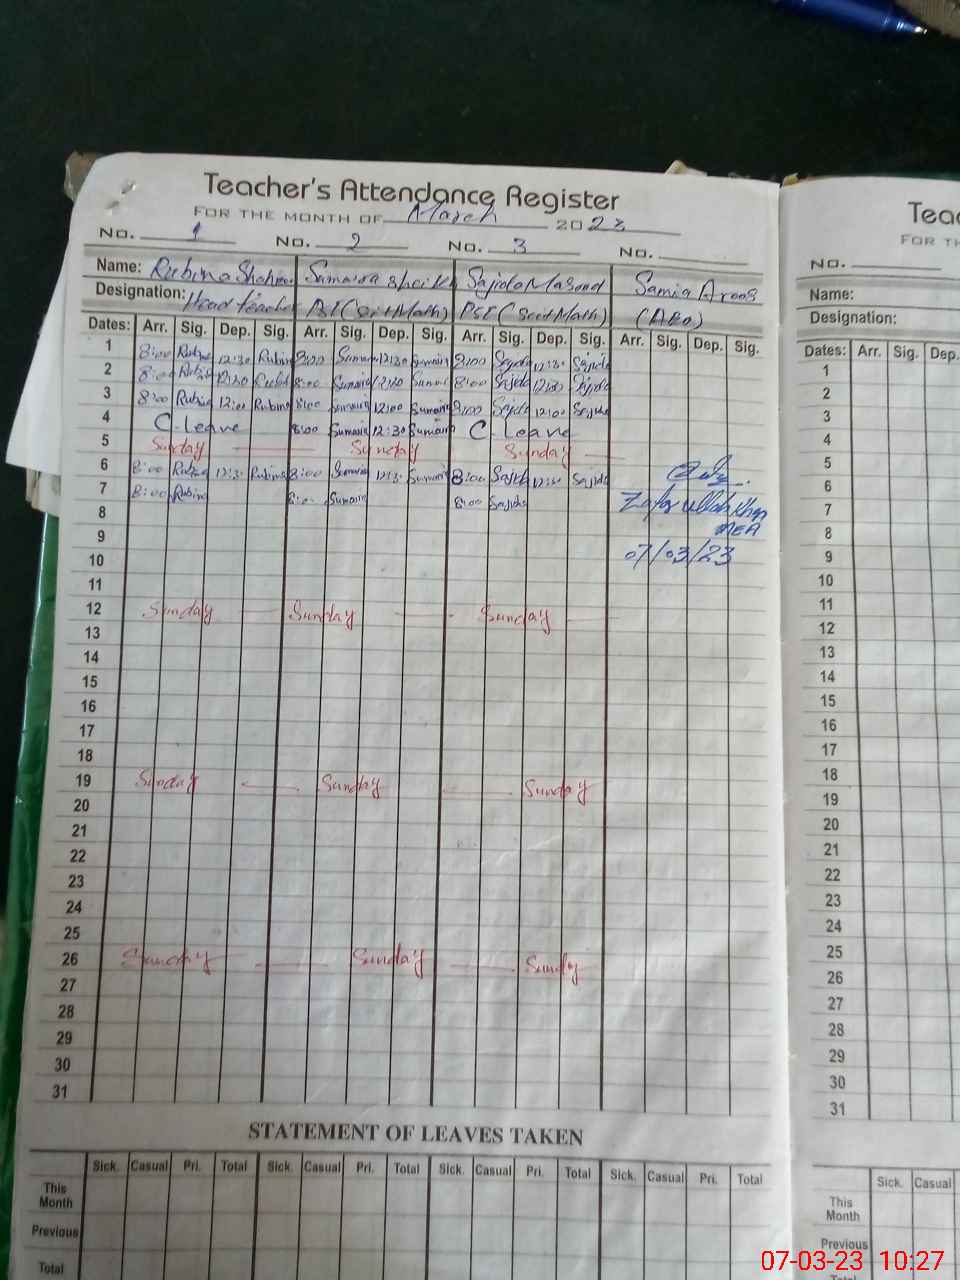 Teacher's Attendance Register
FOR THE MONTH OF March 2023
No. 1 No. 2 No. 3 No.
Name: Rubina Shaheen Sumaira Sheikh Sajida Masood Samia Aroos
Designation: Head teacher PST (Sci+Math) PST (Sci+Math) (AEO)
Dates: Arr. Sig. Dep. Sig. Arr. Sig. Dep. Sig. Arr. Sig. Dep. Sig. Arr. Sig. Dep. Sig.
1 8:00 Rubina 12:30 Rubina 8:00 Sumaira 12:30 Sumaira 8:00 Sajida 12:30 Sajida
2 8:00 Rubina 12:30 Rubina 8:00 Sumaira 12:30 Sumaira 8:00 Sajida 12:30 Sajida
3 8:00 Rubina 12:00 Rubina 8:00 Sumaira 12:00 Sumaira 8:00 Sajida 12:00 Sajida
4 C. Leave 8:00 Sumaira 12:30 Sumaira C. Leave
5 Sunday Sunday Sunday
6 8:00 Rubina 12:3 Rubina 8:00 Sumaira 12:3 Sumaira 8:00 Sajida 12:30 Sajida
7 8:00 Rubina 8:00 Sumaira 8:00 Sajida Zafar ullah Khan
8 MEA
9
10 07/03/23
11
12 Sunday Sunday Sunday
13
14
15
16
17
18
19 Sunday Sunday Sunday
20
21
22
23
24
25
26 Sunday Sunday Sunday
27
28
29
30
31
STATEMENT OF LEAVES TAKEN
Sick. Casual Pri. Total Sick. Casual Pri. Total Sick. Casual Pri. Total Sick. Casual Pri. Total
This Month
Previous
Total
Teac
FOR TH
No.
Name:
Designation:
Dates: Arr. Sig. Dep.
1
2
3
4
5
6
7
8
9
10
11
12
13
14
15
16
17
18
19
20
21
22
23
24
25
26
27
28
29
30
31
Sick. Casual
This Month
Previous
Total
07-03-23 10:27